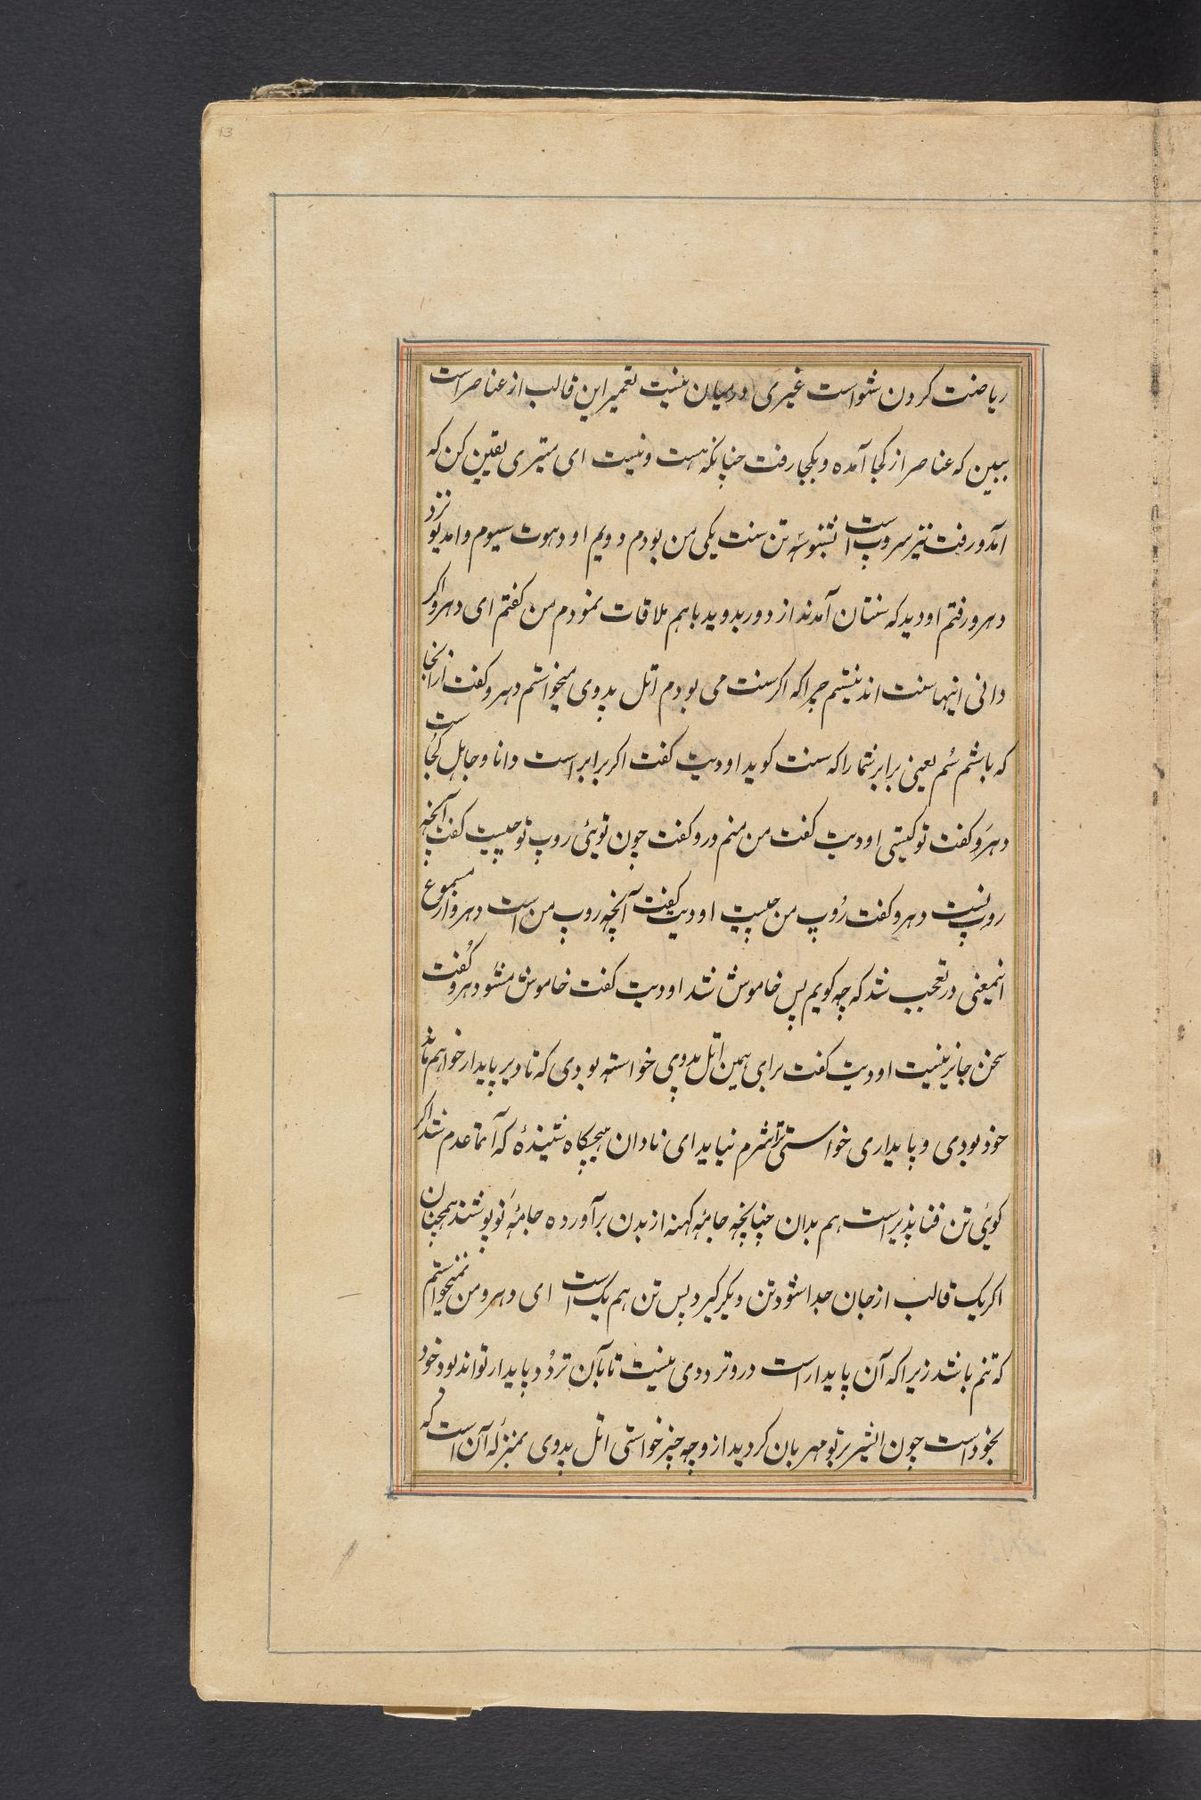 ریاضت کردن شواست غیری درمیان نیست تعمیر این قالب از عناصر است
ببین که عناصر از کجا آمده و بکجا رفت چنانکه هست و نیست ای ستیری یقین کن که
آمد و رفت نیز سروپ است تن سنت یکی من بودم دویم اودهوت سیوم وامدیو نزد
دهرو رفتم او دید که سنتان آمدند از دور بدوید باهم ملاقات نمودم من کفتم ای دهرو اکر
دانی اینها سنت اند نیستم چراکه اکر سنت می بودم اتل پدوی میخواستم دهرو کفت از انجا
که باشم سُم یعنی برابر شما را که سنت کوید اودیت کفت اکر برابر است دانا و جاهل کجا است
دهرو کفت تو کیستی اودیت کفت من منم درو کفت چون توئی روپ تو چیست کفت آنچه
روپ نیست دهرو کفت رُوپ من چیست اودیت کفت آنچه روپ من است دهرو از مسموع
اینمعنی در تعجب شد که چه کویم پس خاموش شد اودیت کفت خاموش مشو دهرو کُفت
سخن جایز نیست اودیت کفت برای همین اتل پدوی خواسته بودی که تا دیر پایدار خواهم ماند
خود بودی و پایداری خواستی ترا شرم نیاید ای نادان هیچکاه شنیدهٔ که آتما عدم شد اکر
کوئی تن فنا پذیر است هم بدان چنانچه جامهٔ کهنه از بدن برآورده جامهٔ نَو پوشند همچنان
اکر یک قالب از جان جدا شود تن دیکر کیرد پس تن هم یک است ای دهرو من نمیخواستم
که تنم باشد زیرا که آن پایدار است درو تردوی نیست تا بآن تردُد پایدار تواند بود خود
بخود است چون ایشیر بر تو مهربان کردید ازو چه چیز خواستی اتل پدوی بمنزله آن است که